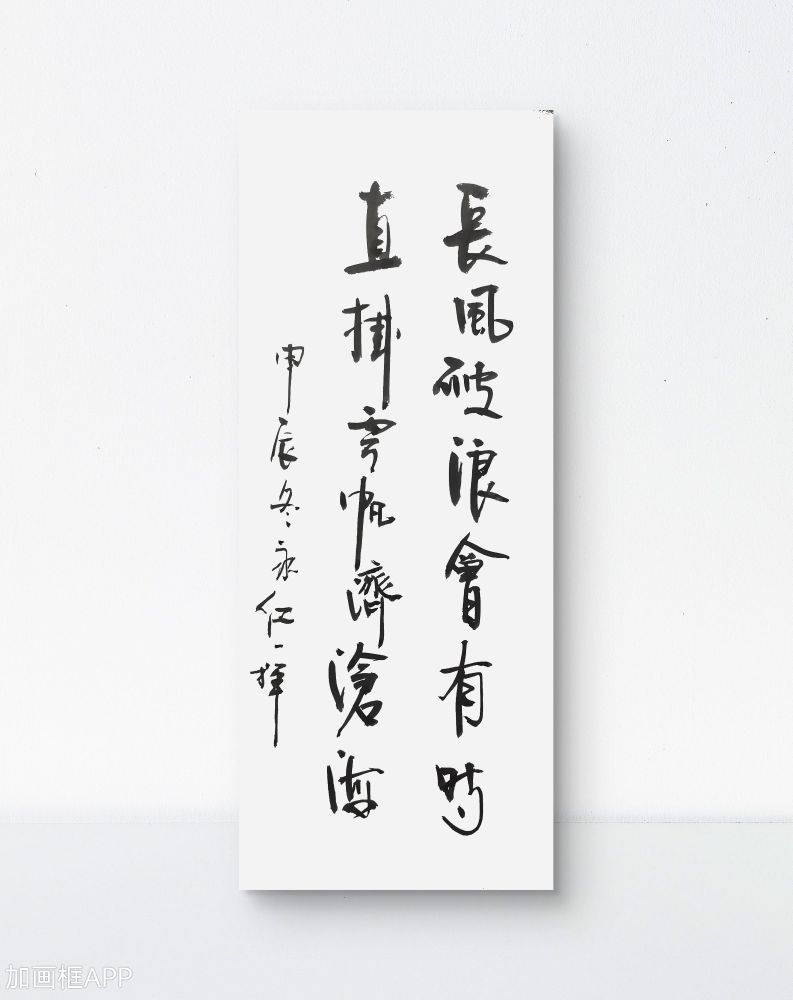 長風破浪會有時
直掛雲帆濟滄海
甲辰冬永仁一揮
加画框APP